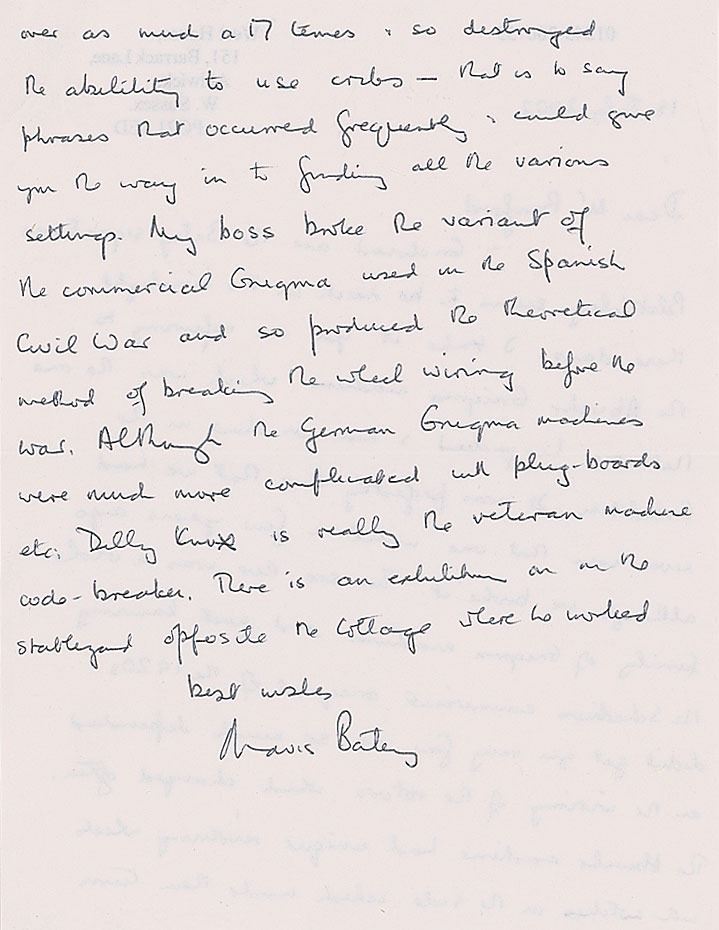 over as much a 17 times & so destroyed
the abilility to use cribs – that is to say
phrases that occurred frequently & could give
you the way in to finding all the various
settings. My boss broke the variant of
the commercial Enigma used in the Spanish
Civil War and so produced the theoretical
method of breaking the wheel wiring before the
war. Although the German Enigma machines
were much more complicated with plug-boards
etc. Dilly Knox is really the veteran machine
code-breaker. There is an exhibition on in the
stableyard opposite the Cottage where he worked
best wishes
Mavis Batey